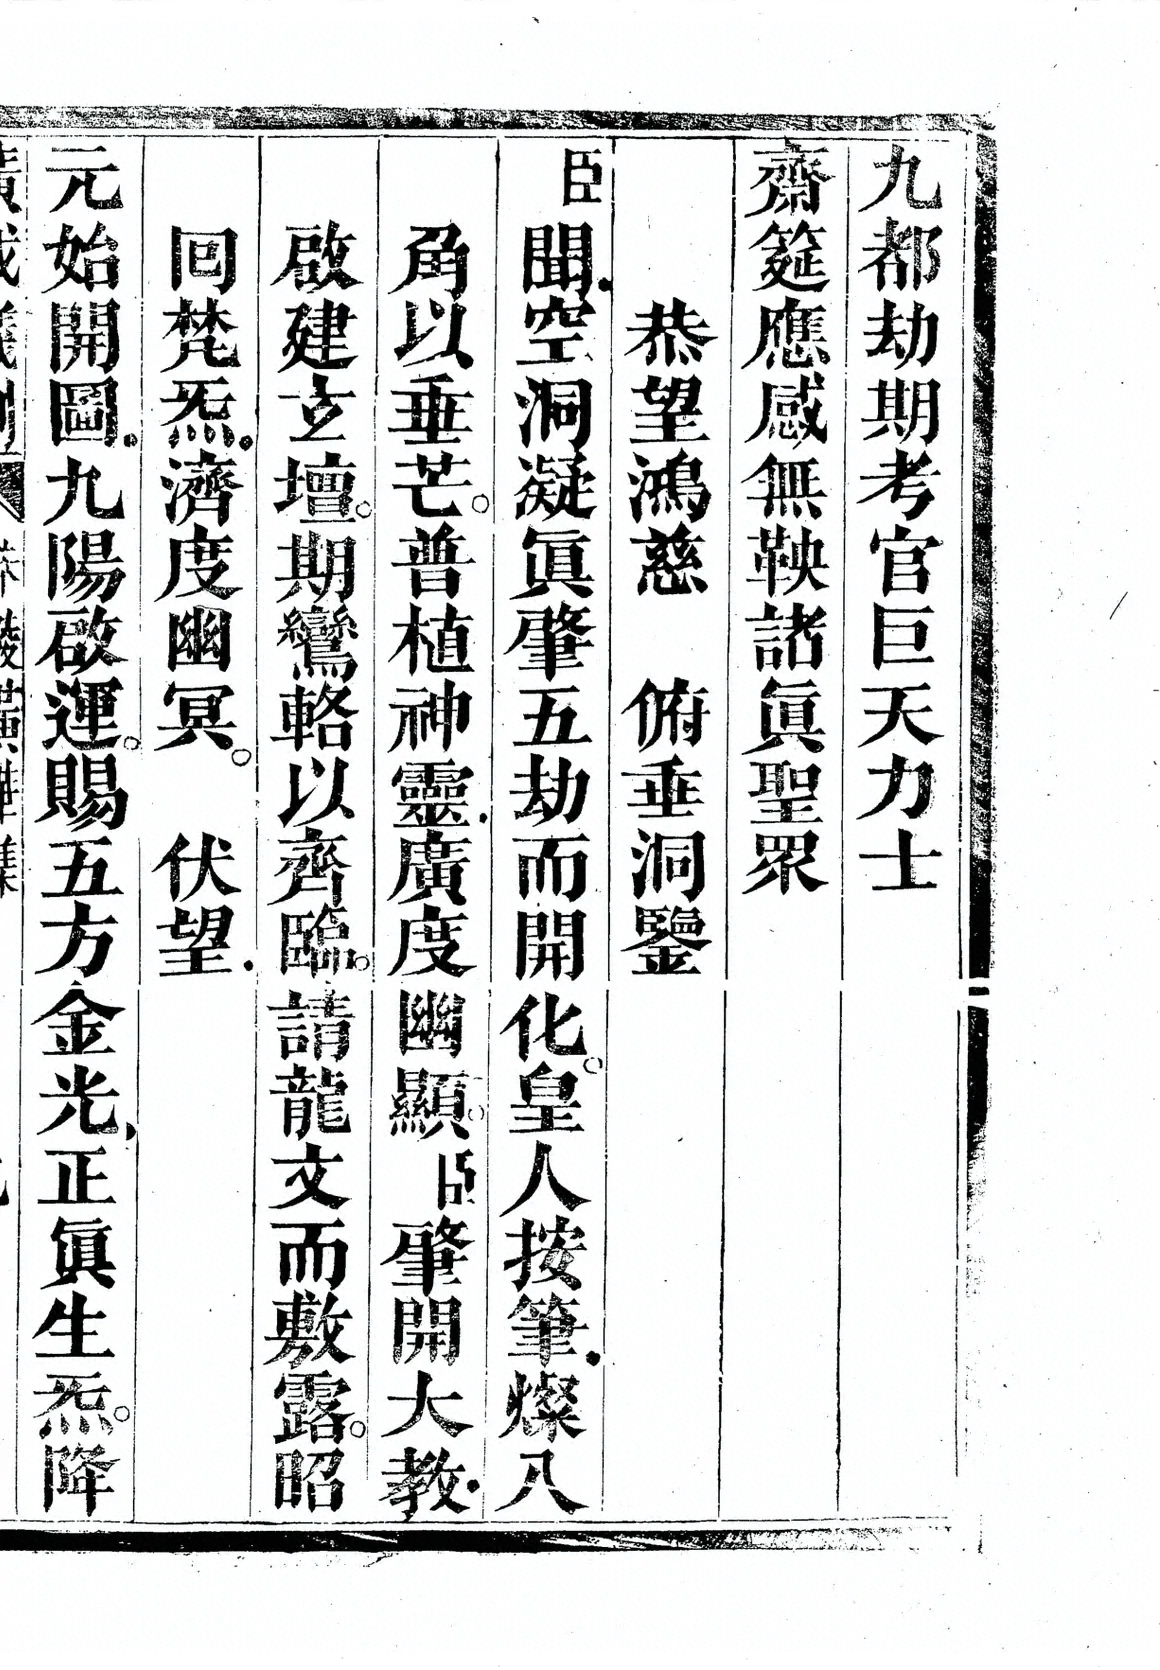 九都劫期考官巨天力士
齋筵應感無鞅諸眞聖眾
恭望鴻慈　俯垂洞鑒
臣聞．空洞凝眞肇五劫而開化。皇人按筆．燦八
角以垂芒。普植神靈．廣度幽顯。臣肇開大教．
啟建玄壇。期鸞輅以齊臨。請龍文而敷露。昭
回梵炁．濟度幽冥。　伏望．
元始開圖．九陽啟運。賜五方金光，正眞生炁。降
廣成儀制